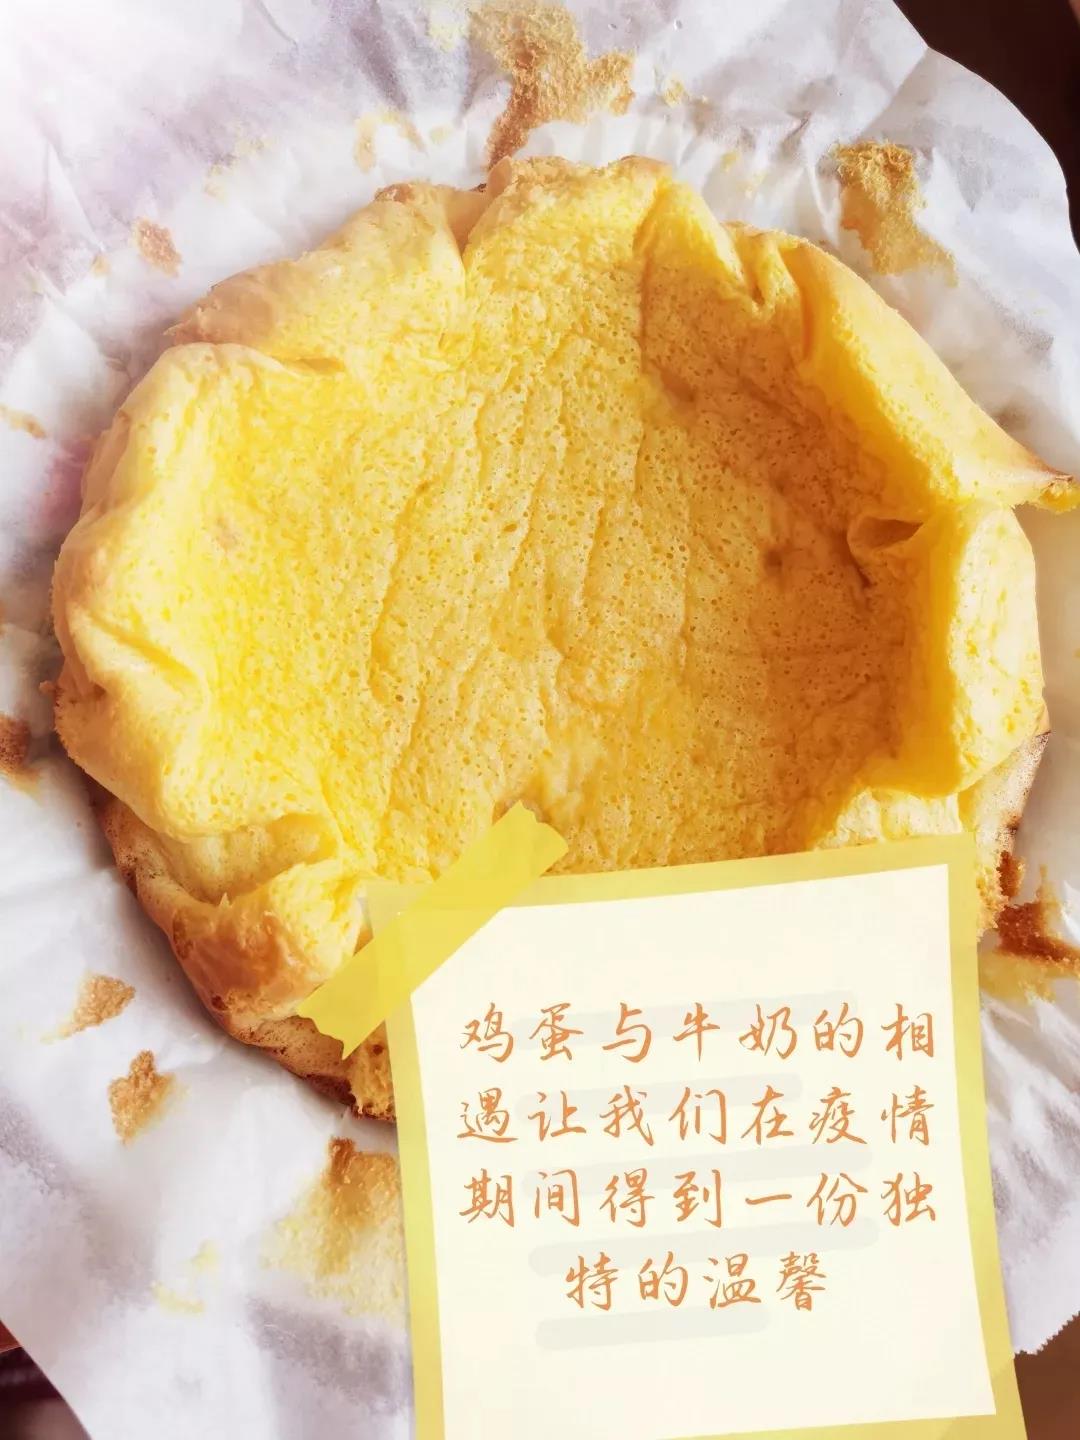 鸡蛋与牛奶的相
遇让我们在疫情
期间得到一份独
特的温馨